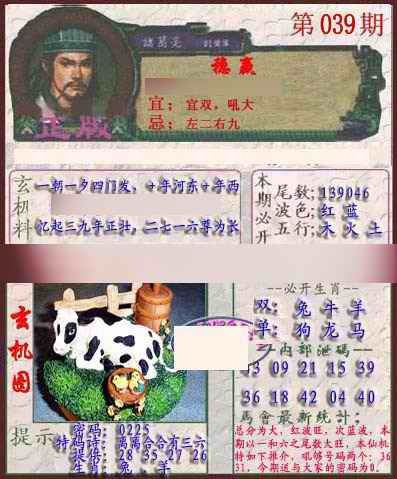 第039期
諸葛亮
稳赢
宜；宜双，吼大
忌；左二右九
正版
玄机料
一朝一夕四门发，十年河东十年西
忆起三九年正壮，二七一六尊为长
本期必开
尾数；139046
波色；红 蓝
五行；木 火 土
玄机图
必开生肖
双：兔 牛 羊
单：狗 龙 马
内部泄码
43 09 21 15 39
36 18 42 04 40
馬會最新統计：
总分为大，红波旺，次蓝波，本
期以一和六之尾数大旺，本仙机
特如下推介，吼够号码两个：36
31，今期送与大家的密码为0．
提示
密码：0225
特码诗：离离合合有三六
提供：28 35 27 26
生肖：兔、羊